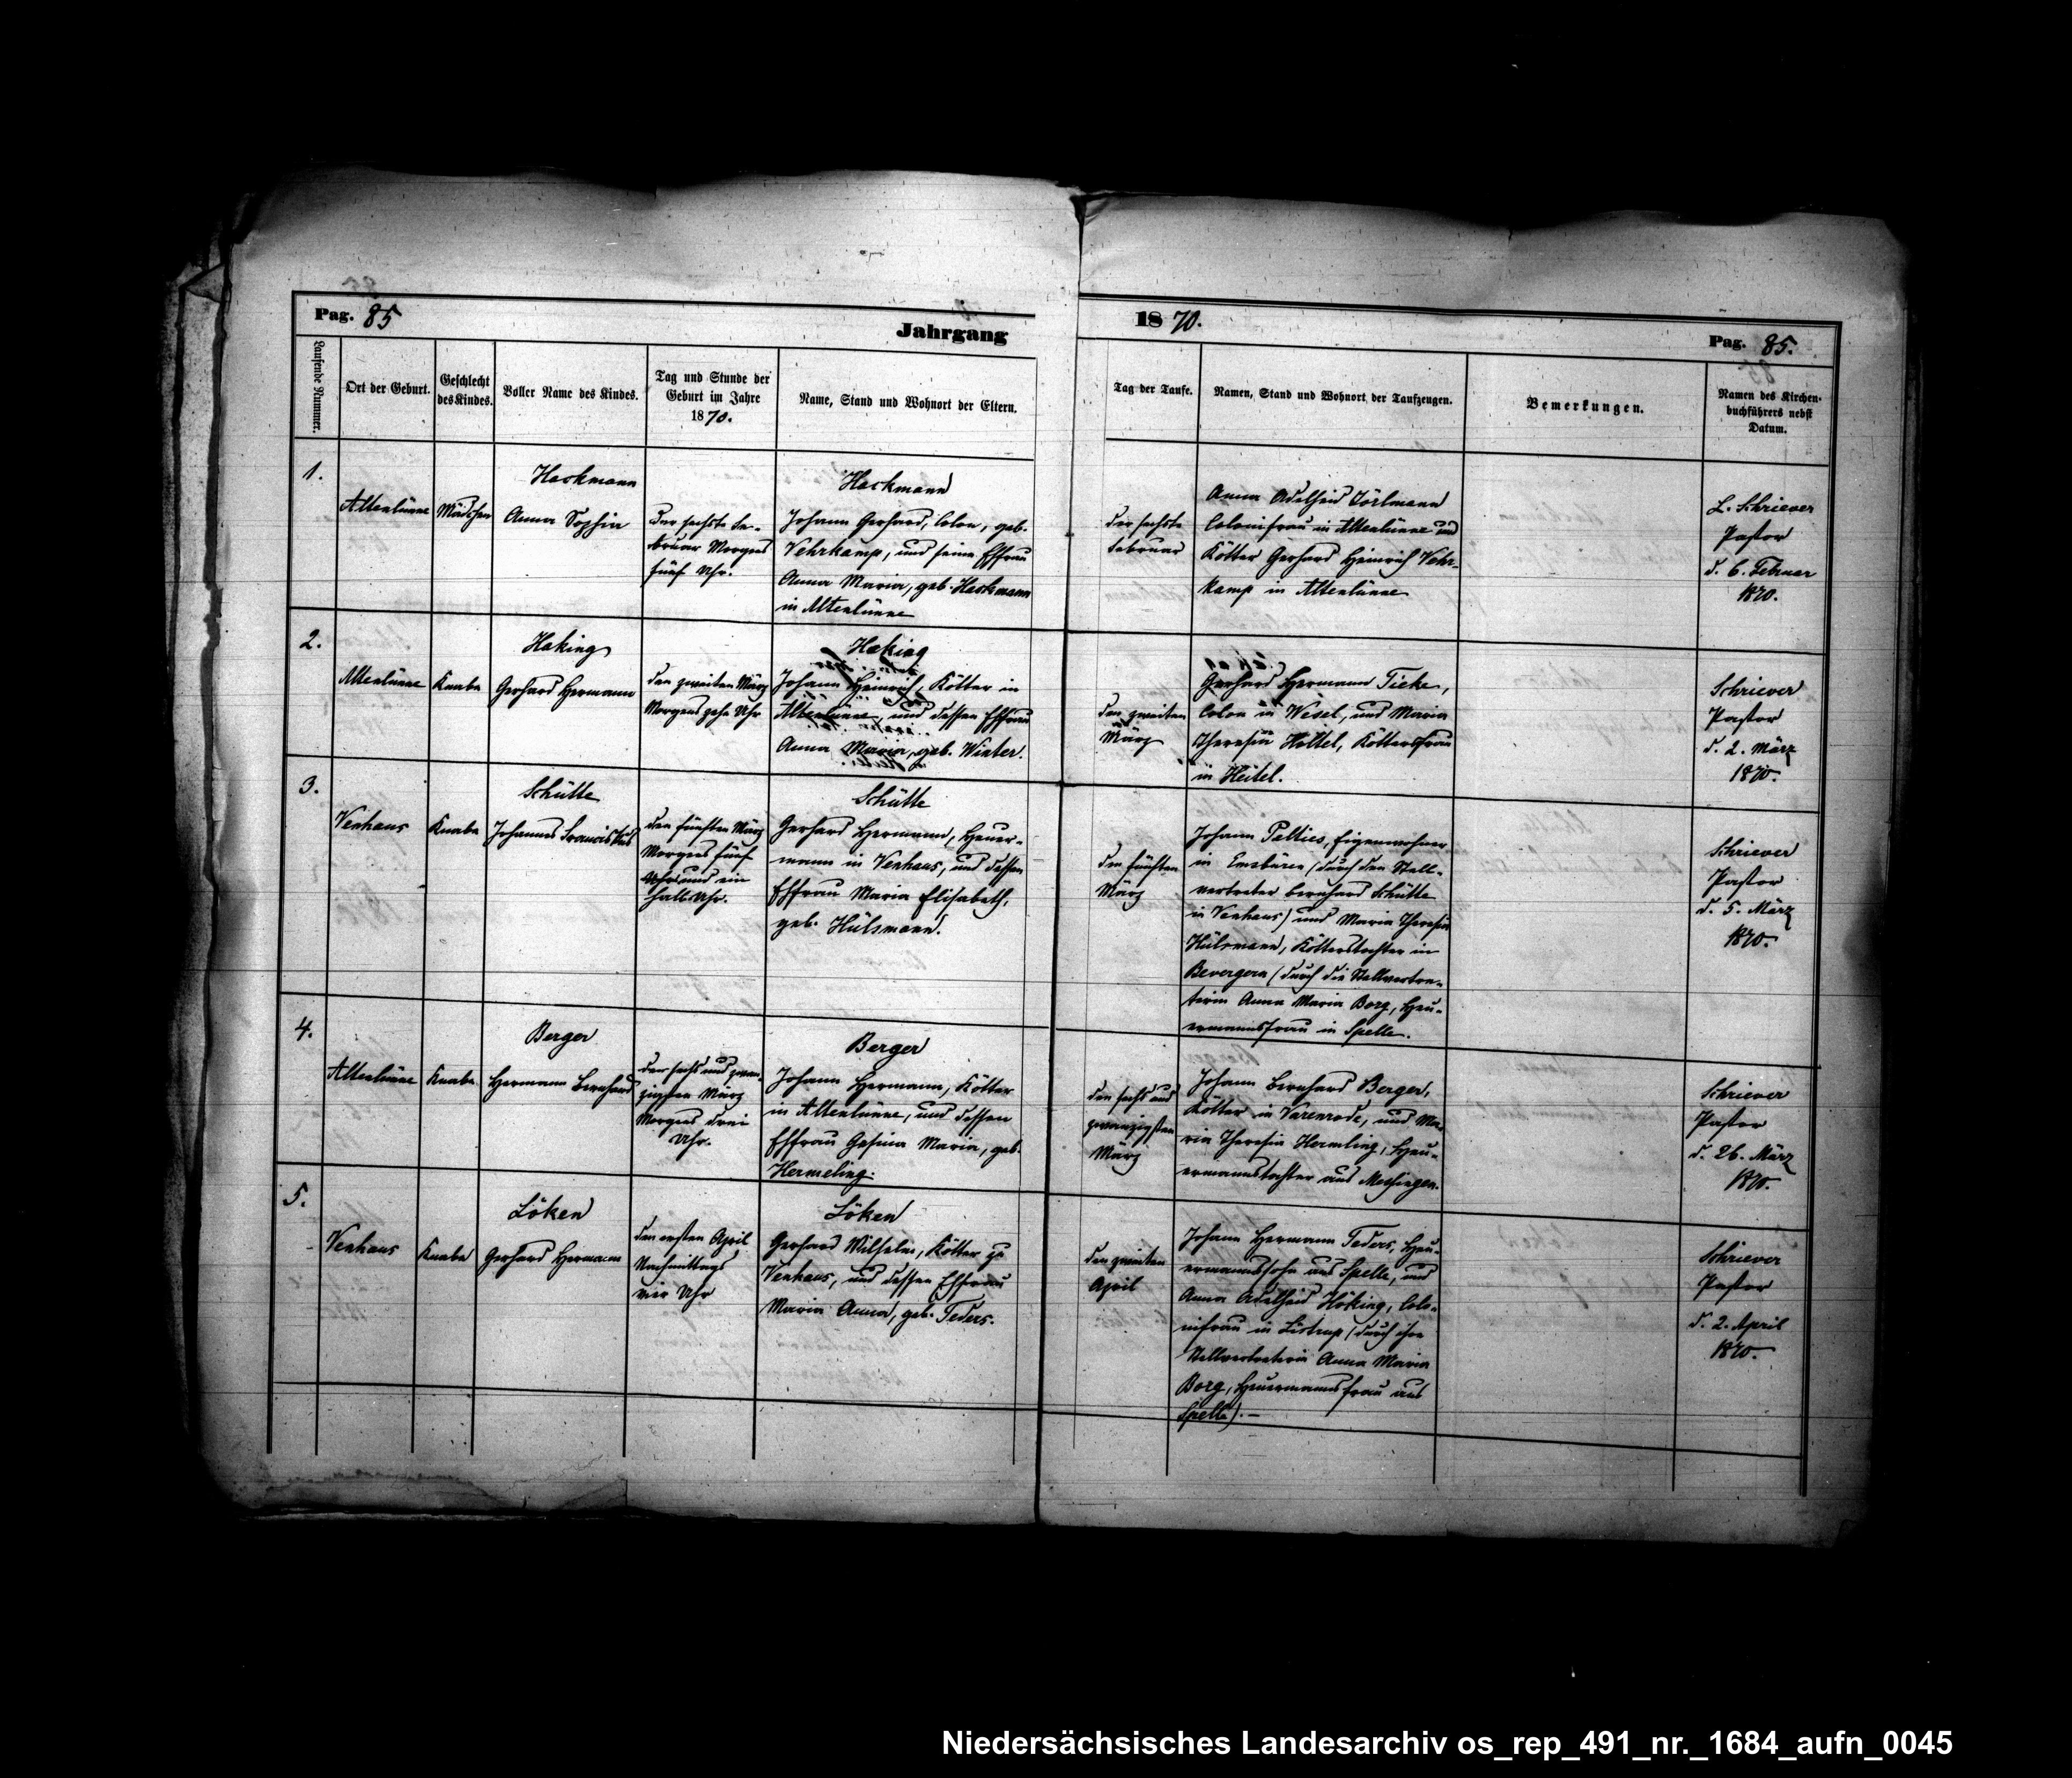 Pag. 85
Jahrgang
1870.
Pag. 85.
Laufende Nummer.
Ort der Geburt.
Geschlecht
des Kindes.
Voller Name des Kindes.
Tag und Stunde der
Geburt im Jahre
1870.
Name, Stand und Wohnort der Eltern.
Tag der Taufe.
Namen, Stand und Wohnort der Taufzeugen.
Bemerkungen.
Namen des Kirchen-
buchführers nebst
Datum.
1.
Altenlünne
Mädchen
Hackmann
Anna Sophia
Der sechste Fe-
bruar Morgens
fünf Uhr.
Hackmann
Johann Gerhard, Colon, geb.
Vehrkamp, und seine Ehfrau
Anna Maria, geb. Hackmann
in Altenlünne
der sechste
Februar
Anna Adelheid
Colonifrau in Altenlünne und
Kötter Gerhard Heinrich Vehr-
kamp in Altenlünne
L. Schriever
Pastor
d. 6. Februar
1870.
2.
Altenlünne
Knabe
Haking
Gerhard Hermann
den zweiten März
Morgens zehn Uhr
Haking
Johann Heinrich, Kötter in
Altenlünne und dessen Ehfrau
Anna Maria, geb. Winter.
den zweiten
März
Gerhard Hermann Tieke,
Colon in Wesel, und Maria
Theresia Holtel, Köttersfrau
in Heitel.
Schriever
Pastor
d. 2. März
1870.
3.
Venhaus
Knabe
Schütte
Johannes Franciskus
den fünften März
Morgens fünf
Uhr und ein
halb Uhr.
Schütte
Gerhard Hermann, Heuer-
mann in Venhaus, und dessen
Ehfrau Maria Elisabeth,
geb. Hülsmann.
den fünften
März
Johann Velties, Eigenwohner
in Emsbüren (durch den Stell-
vertreter Bernhard Schütte
in Venhaus) und Maria Theresia
Hülsmann, Kötterstochter in
Bevergern (durch die Stellvertre-
terin Anna Maria Borg, Heu-
ermannsfrau in Spelle.
Schriever
Pastor
d. 5. März
1870.
4.
Altenlünne
Knabe
Berger
Hermann Bernhard
den sechs und zwan-
zigsten März
Morgens drei
Uhr.
Berger
Johann Hermann, Kötter
in Altenlünne, und dessen
Ehfrau Gesina Maria, geb.
Hermeling.
den sechs und
zwanzigsten
März
Johann Bernhard Berger,
Kötter in Varenrode, und Ma-
ria Theresia Hermling, Heu-
ermannstochter aus Messingen.
Schriever
Pastor
d. 26. März
1870.
5.
Venhaus
Knabe
Löken
Gerhard Hermann
den ersten April
Nachmittags
vier Uhr
Löken
Gerhard Wilhelm, Kötter zu
Venhaus, und dessen Ehfrau
Maria Anna, geb. Feders.
den zweiten
April
Johann Hermann Feders, Heu-
ermannssohn aus Spelle, und
Anna Adelheid Höking, Colo-
nifrau in Listrup (durch ihre
Stellvertreterin Anna Maria
Borg, Heuermannsfrau aus
Spelle).–
Schriever
Pastor
d. 2. April
1870.
Niedersächsisches Landesarchiv os_rep_491_nr._1684_aufn_0045